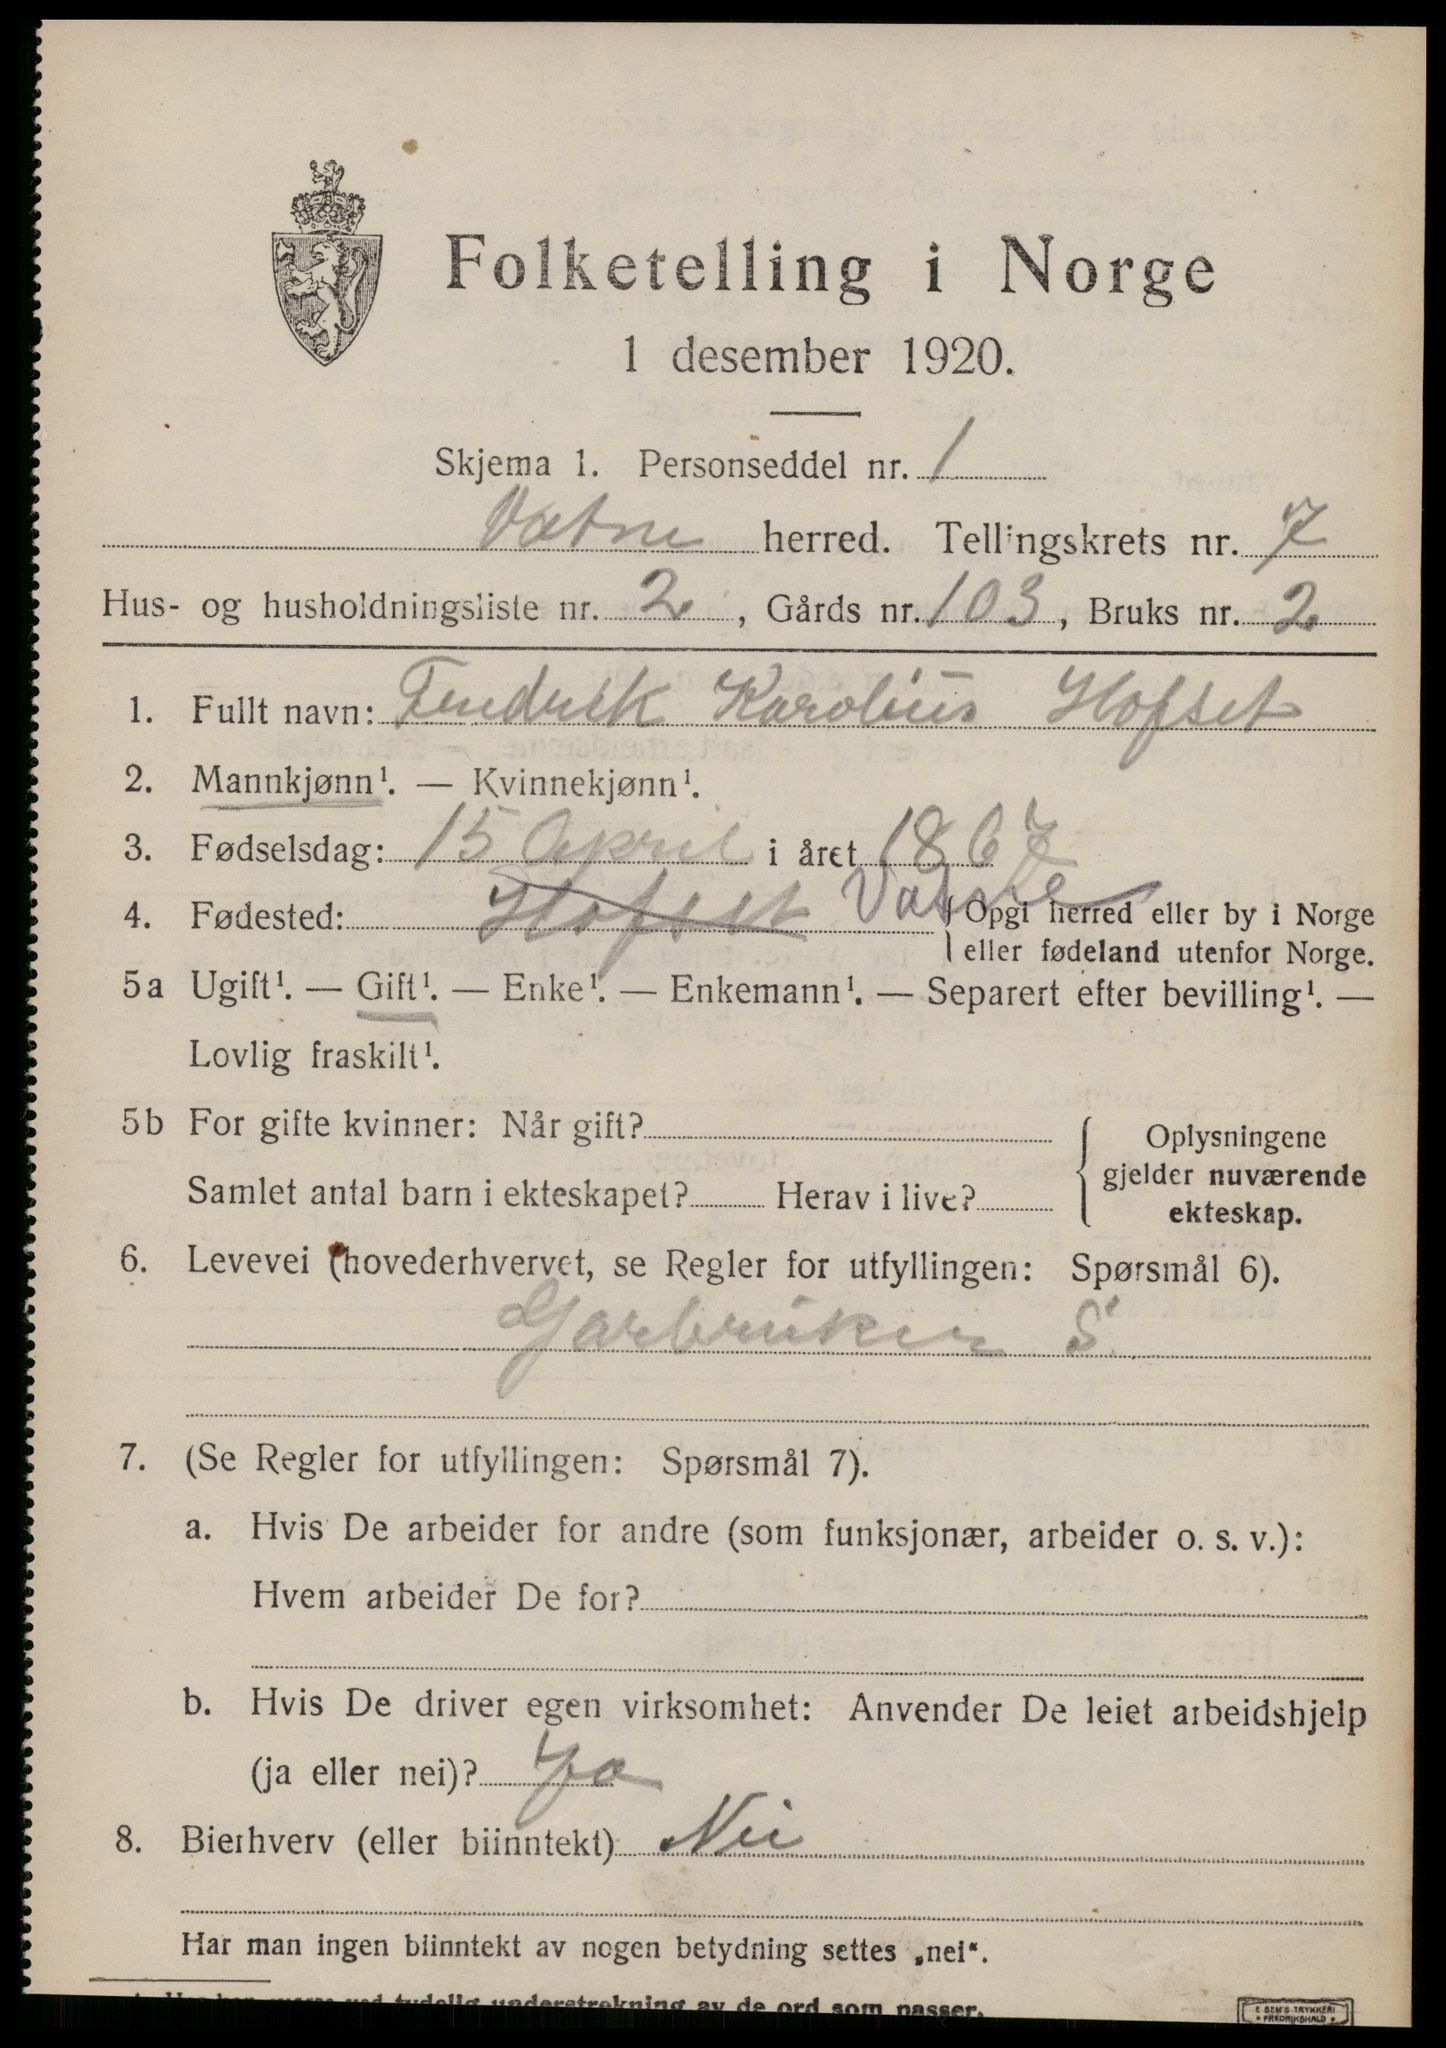 Folketelling i Norge
1 desember 1920.
Skjema 1. Personseddel nr. 1
Vatne herred. Tellingskrets nr. 7
Hus- og husholdningsliste nr. 2, Gårds nr. 103, Bruks nr. 2
1. Fullt navn: Fredrik Karolius Hofset
2. Mannkjønn¹. — Kvinnekjønn¹.
3. Fødselsdag: 15 April i året 1867
4. Fødested: Hofset Vatne { Opgi herred eller by i Norge
eller fødeland utenfor Norge.
5a Ugift¹. — Gift¹. — Enke¹. — Enkemann¹. — Separert efter bevilling¹. —
Lovlig fraskilt¹.
5b For gifte kvinner: Når gift?
Samlet antal barn i ekteskapet? Herav i live?
{ Oplysningene
gjelder nuværende
ekteskap.
6. Levevei (hovederhvervet, se Regler for utfyllingen: Spørsmål 6).
Garbruker S.
7. (Se Regler for utfyllingen: Spørsmål 7).
a. Hvis De arbeider for andre (som funksjonær, arbeider o. s. v.):
Hvem arbeider De for?
b. Hvis De driver egen virksomhet: Anvender De leiet arbeidshjelp
(ja eller nei)? Ja
8. Bierhverv (eller biinntekt) Nei
Har man ingen biinntekt av nogen betydning settes „nei“.
ved tydelig understrekning av de ord som passer.
E SEM'S TRYKKERI
• FREDRIKSHALD •